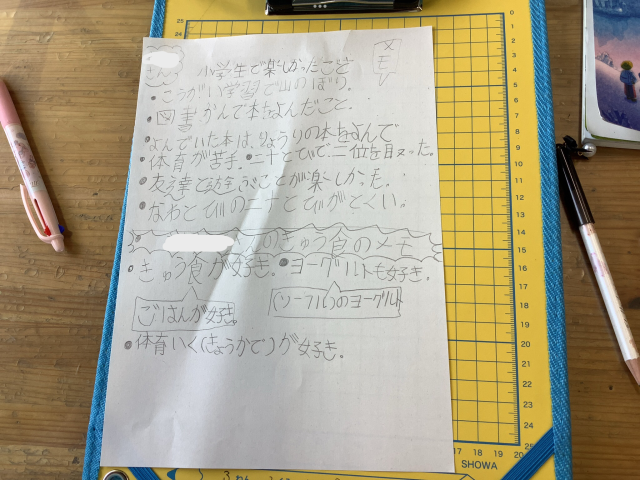 メモ
さんの 小学生で楽しかったこと
・こうがい学習で山のぼり。
・図書かんで本をよんだこと。
よんでいた本は、りょうりの本をよんで
・体育が苦手。・二十とびで二位を取った。
・友達と遊ぶことが楽しかった。
・なわとびの二十とびがとくい。
のきゅう食のメモ
・きゅう食が好き。・ヨーグルトも好き。
ごはんが好き。
(ソーフル)のヨーグルト
・体育いく(きょうかで)が好き。
SHOWA